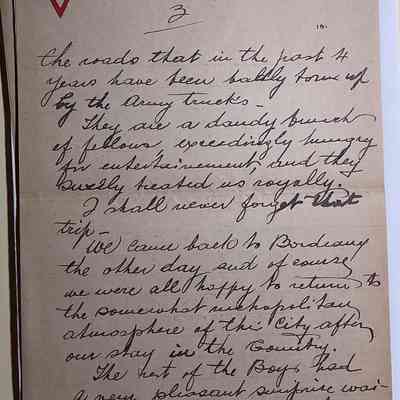 3
19.
the roads that in the past 4
years have been badly torn up
by the Army trucks -
They are a dandy bunch
of fellows, exceedingly hungry
for entertainement, and they
surely treated us royally.
I shall never forget that
trip -
We came back to Bordeaux
the other day and of course
we were all happy to return to
the somewhat metropolitan
atmosphere of this City after
our stay in the Country.
The rest of the Boys had
a very pleasant surprise wai-